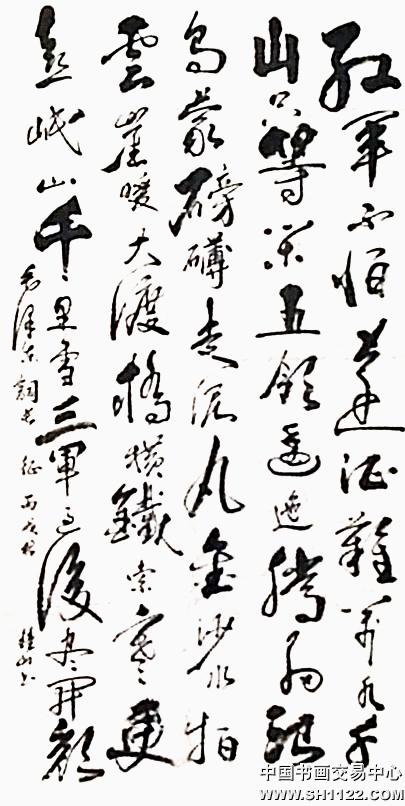 红軍不怕遠征難万水千
山只等闲五岭逶迤腾细浪
烏蒙磅礴走泥丸金沙水拍
雲崖暖大渡橋横鐵索寒更
喜岷山千里雪三軍过後尽开颜
毛泽东词长征 丙戌
桂山书
中国书画交易中心
WWW.SH1122.COM